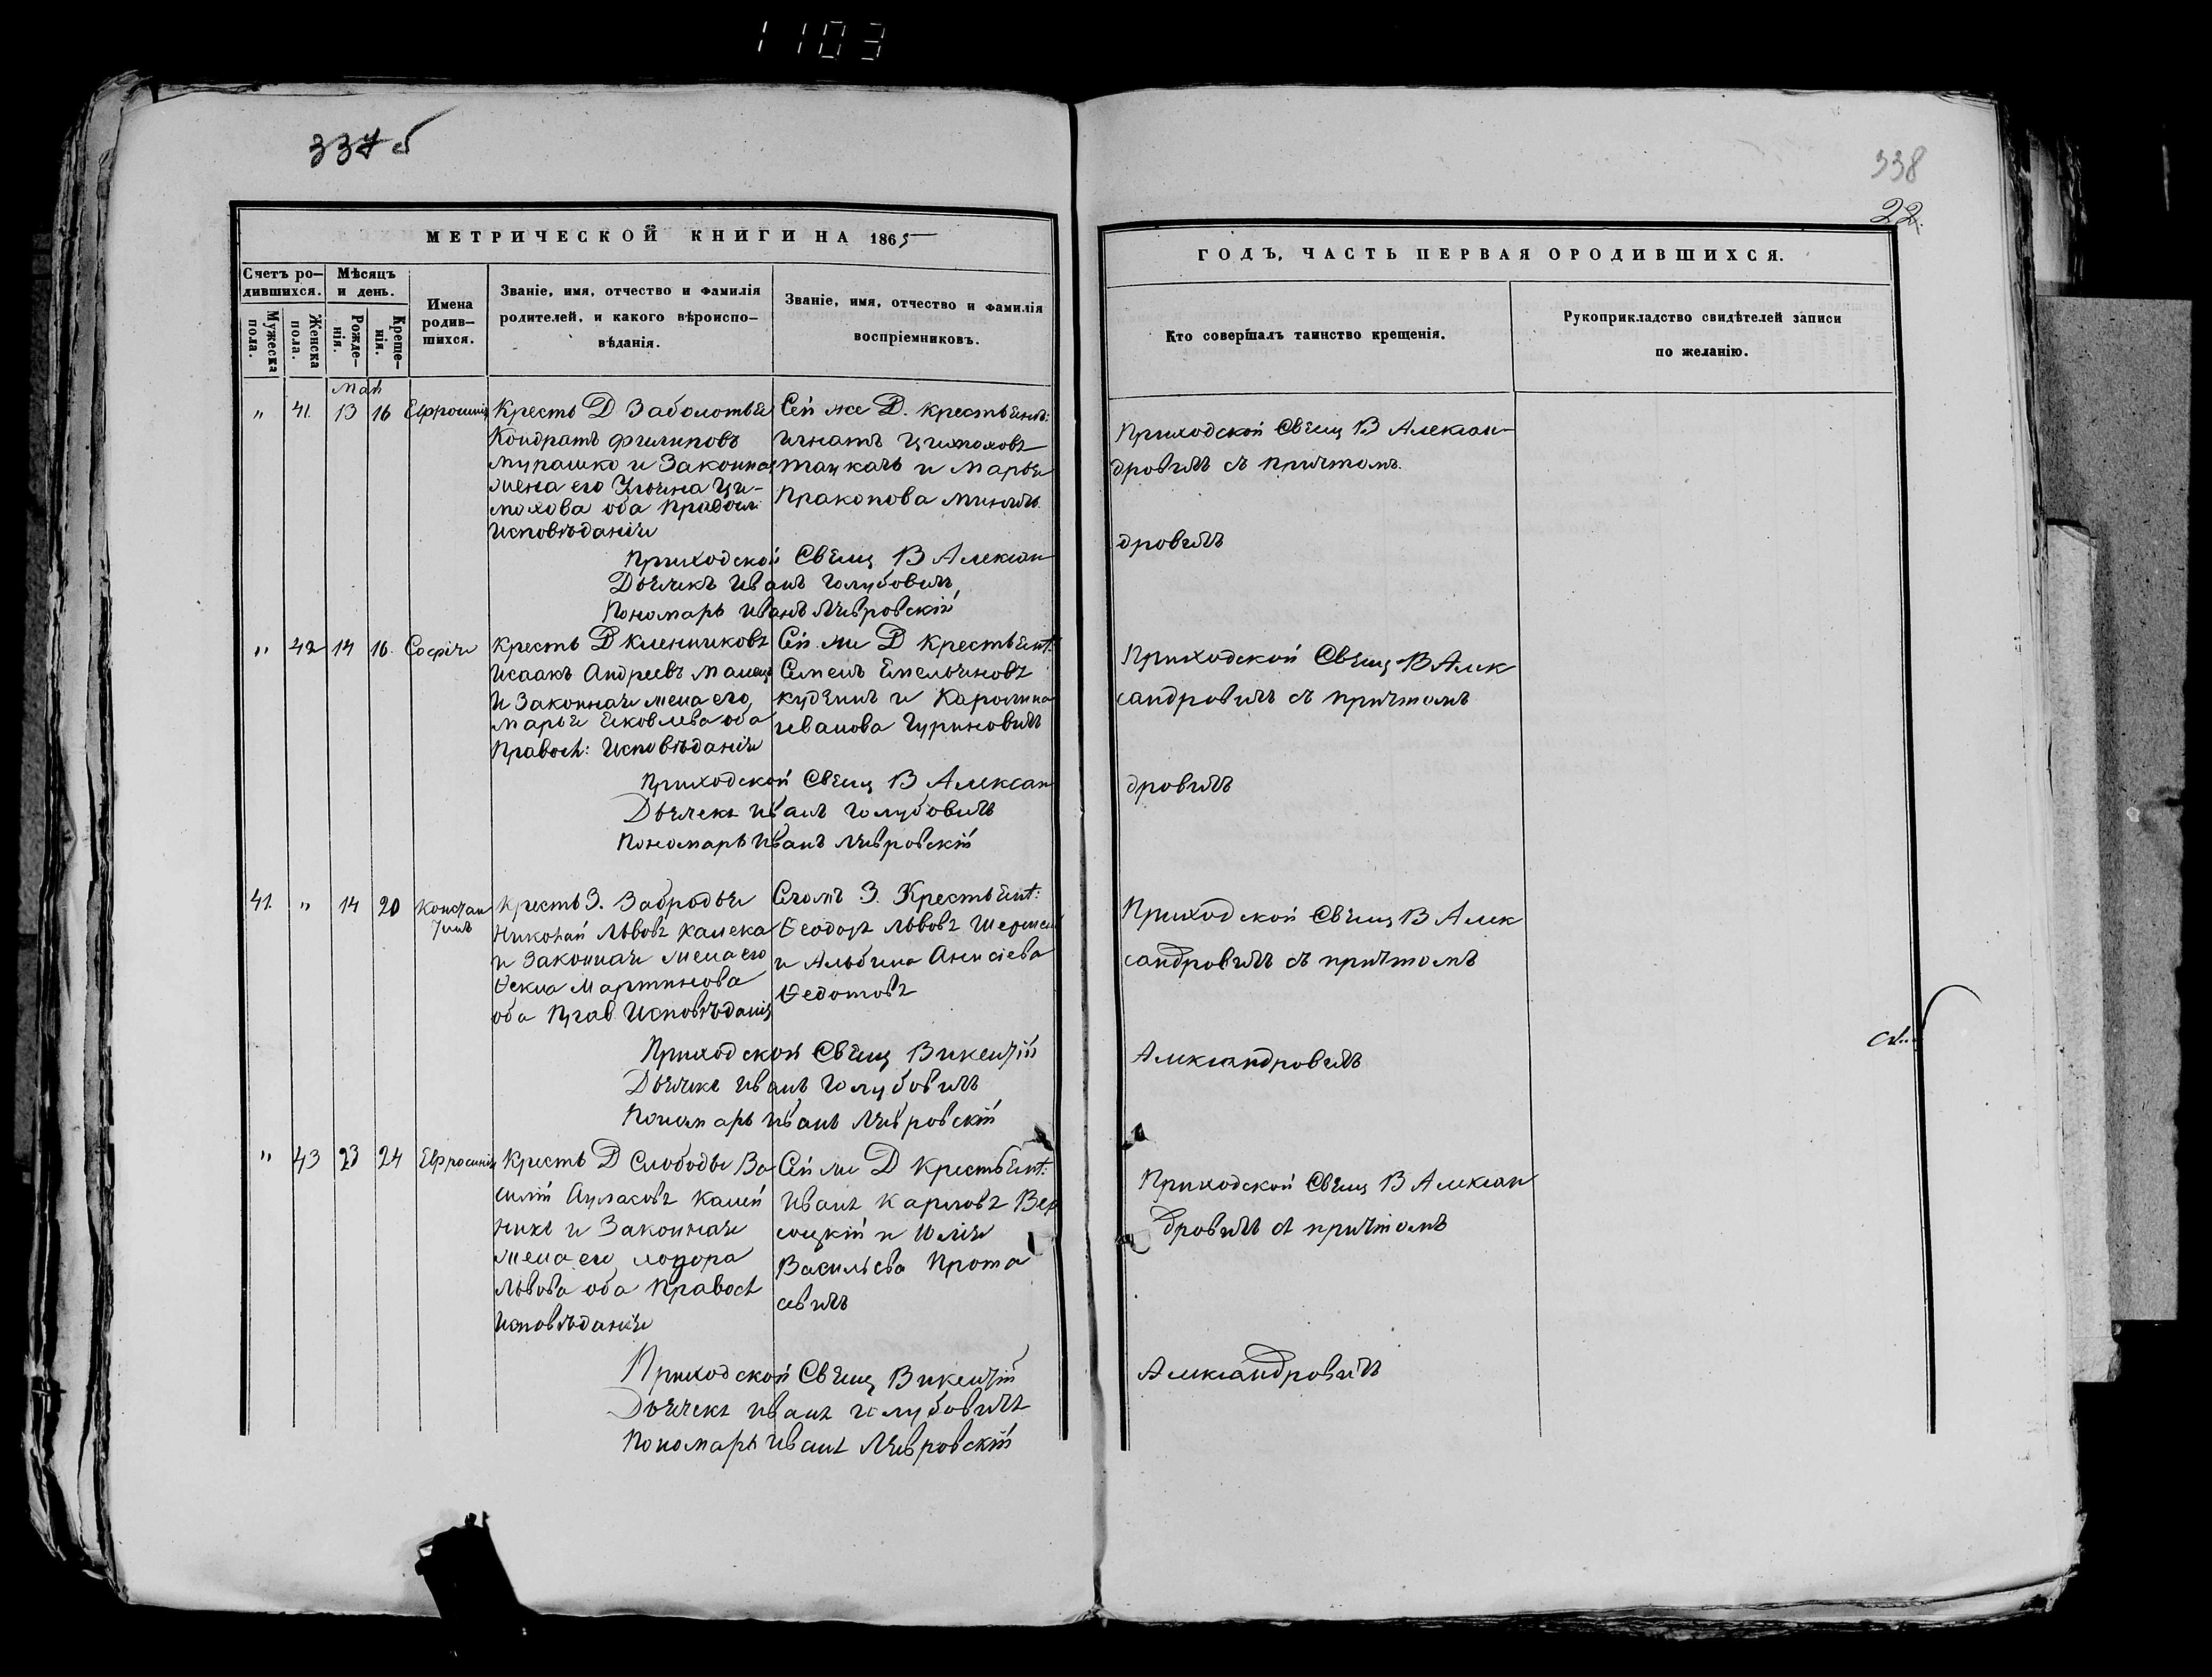 1103
337 б
338
22.
МЕТРИЧЕСКОЙ КНИГИ НА 1865
ГОДЪ, ЧАСТЬ ПЕРВАЯ О РОДИВШИХСЯ.
Счетъ ро-
дившихся.
Мѣсяцъ
и день.
Мужеска
пола.
Женска
пола.
Рожде-
нія.
Креще-
нія.
Имена
родив-
шихся.
Званіе, имя, отчество и фамилія
родителей, и какого вѣроиспо-
вѣданія.
Званіе, имя, отчество и фамилія
воспріемниковъ.
Кто совершалъ таинство крещенія.
Рукоприкладство свидѣтелей записи
по желанію.
Май
„ 41. 13 16 Евфросинія
Крестъ Д Заболотья
Кондратъ Филиповъ
Мурашко и Законная
жена его Ульяна Ци-
мохова оба Правосл:
Исповѣданія
Сей же Д. крестьяне:
Игнатъ Цимоховъ
Ткачъ и Марья
Пракопова
Приходской Свящ В Алексан-
дровичъ съ причтомъ.
Приходской Свящ В Алексан
дровичъ
Дьячекъ Иванъ Голубовичъ
Пономарь Иванъ
„ 42 14 16. Софія
Крестъ Д Клетниковъ
Исаакъ Андреевъ
и Законная жена его
Марья Яковлева оба
Правосл: Исповѣданія
Сей же Д Крестьян:
Семенъ Емельяновъ
и Каролина
Иванова Гуриновичъ
Приходской Свящ В Алек
сандровичъ съ причтомъ
Приходской Свящ В Алексан
дровичъ
Дьячекъ Иванъ Голубовичъ
Пономарь Иванъ
41. „ 14 20 Констан
тинъ
Крестъ З. Забродья
Николай Львовъ Калека
и Законная жена его
Ѳекла Мартинова
оба Прав Исповѣданія
Сголъ З. Крестьян:
Ѳеодоръ Львовъ
и Альбина Анисіева
Ѳедотовъ
Приходской Свящ В Алек
сандровичъ съ причтомъ
Приходской Свящ Викентій
Александровичъ
Дьячекъ Иванъ Голубовичъ
Пономарь Иванъ
„ 43 23 24 Евфросинія
Крестъ Д Слободы Ва-
силій
и Законная
жена его
Львова оба Правосл
Исповѣданія
Сей же Д Крестьян:
Иванъ Карловъ Вер
соцкій и Юлія
Васильева Прота
севичъ
Приходской Свящ В Алексан
дровичъ съ причтомъ
Приходской Свящ Викентій
Александровичъ
Дьячекъ Иванъ Голубовичъ
Пономарь Иванъ